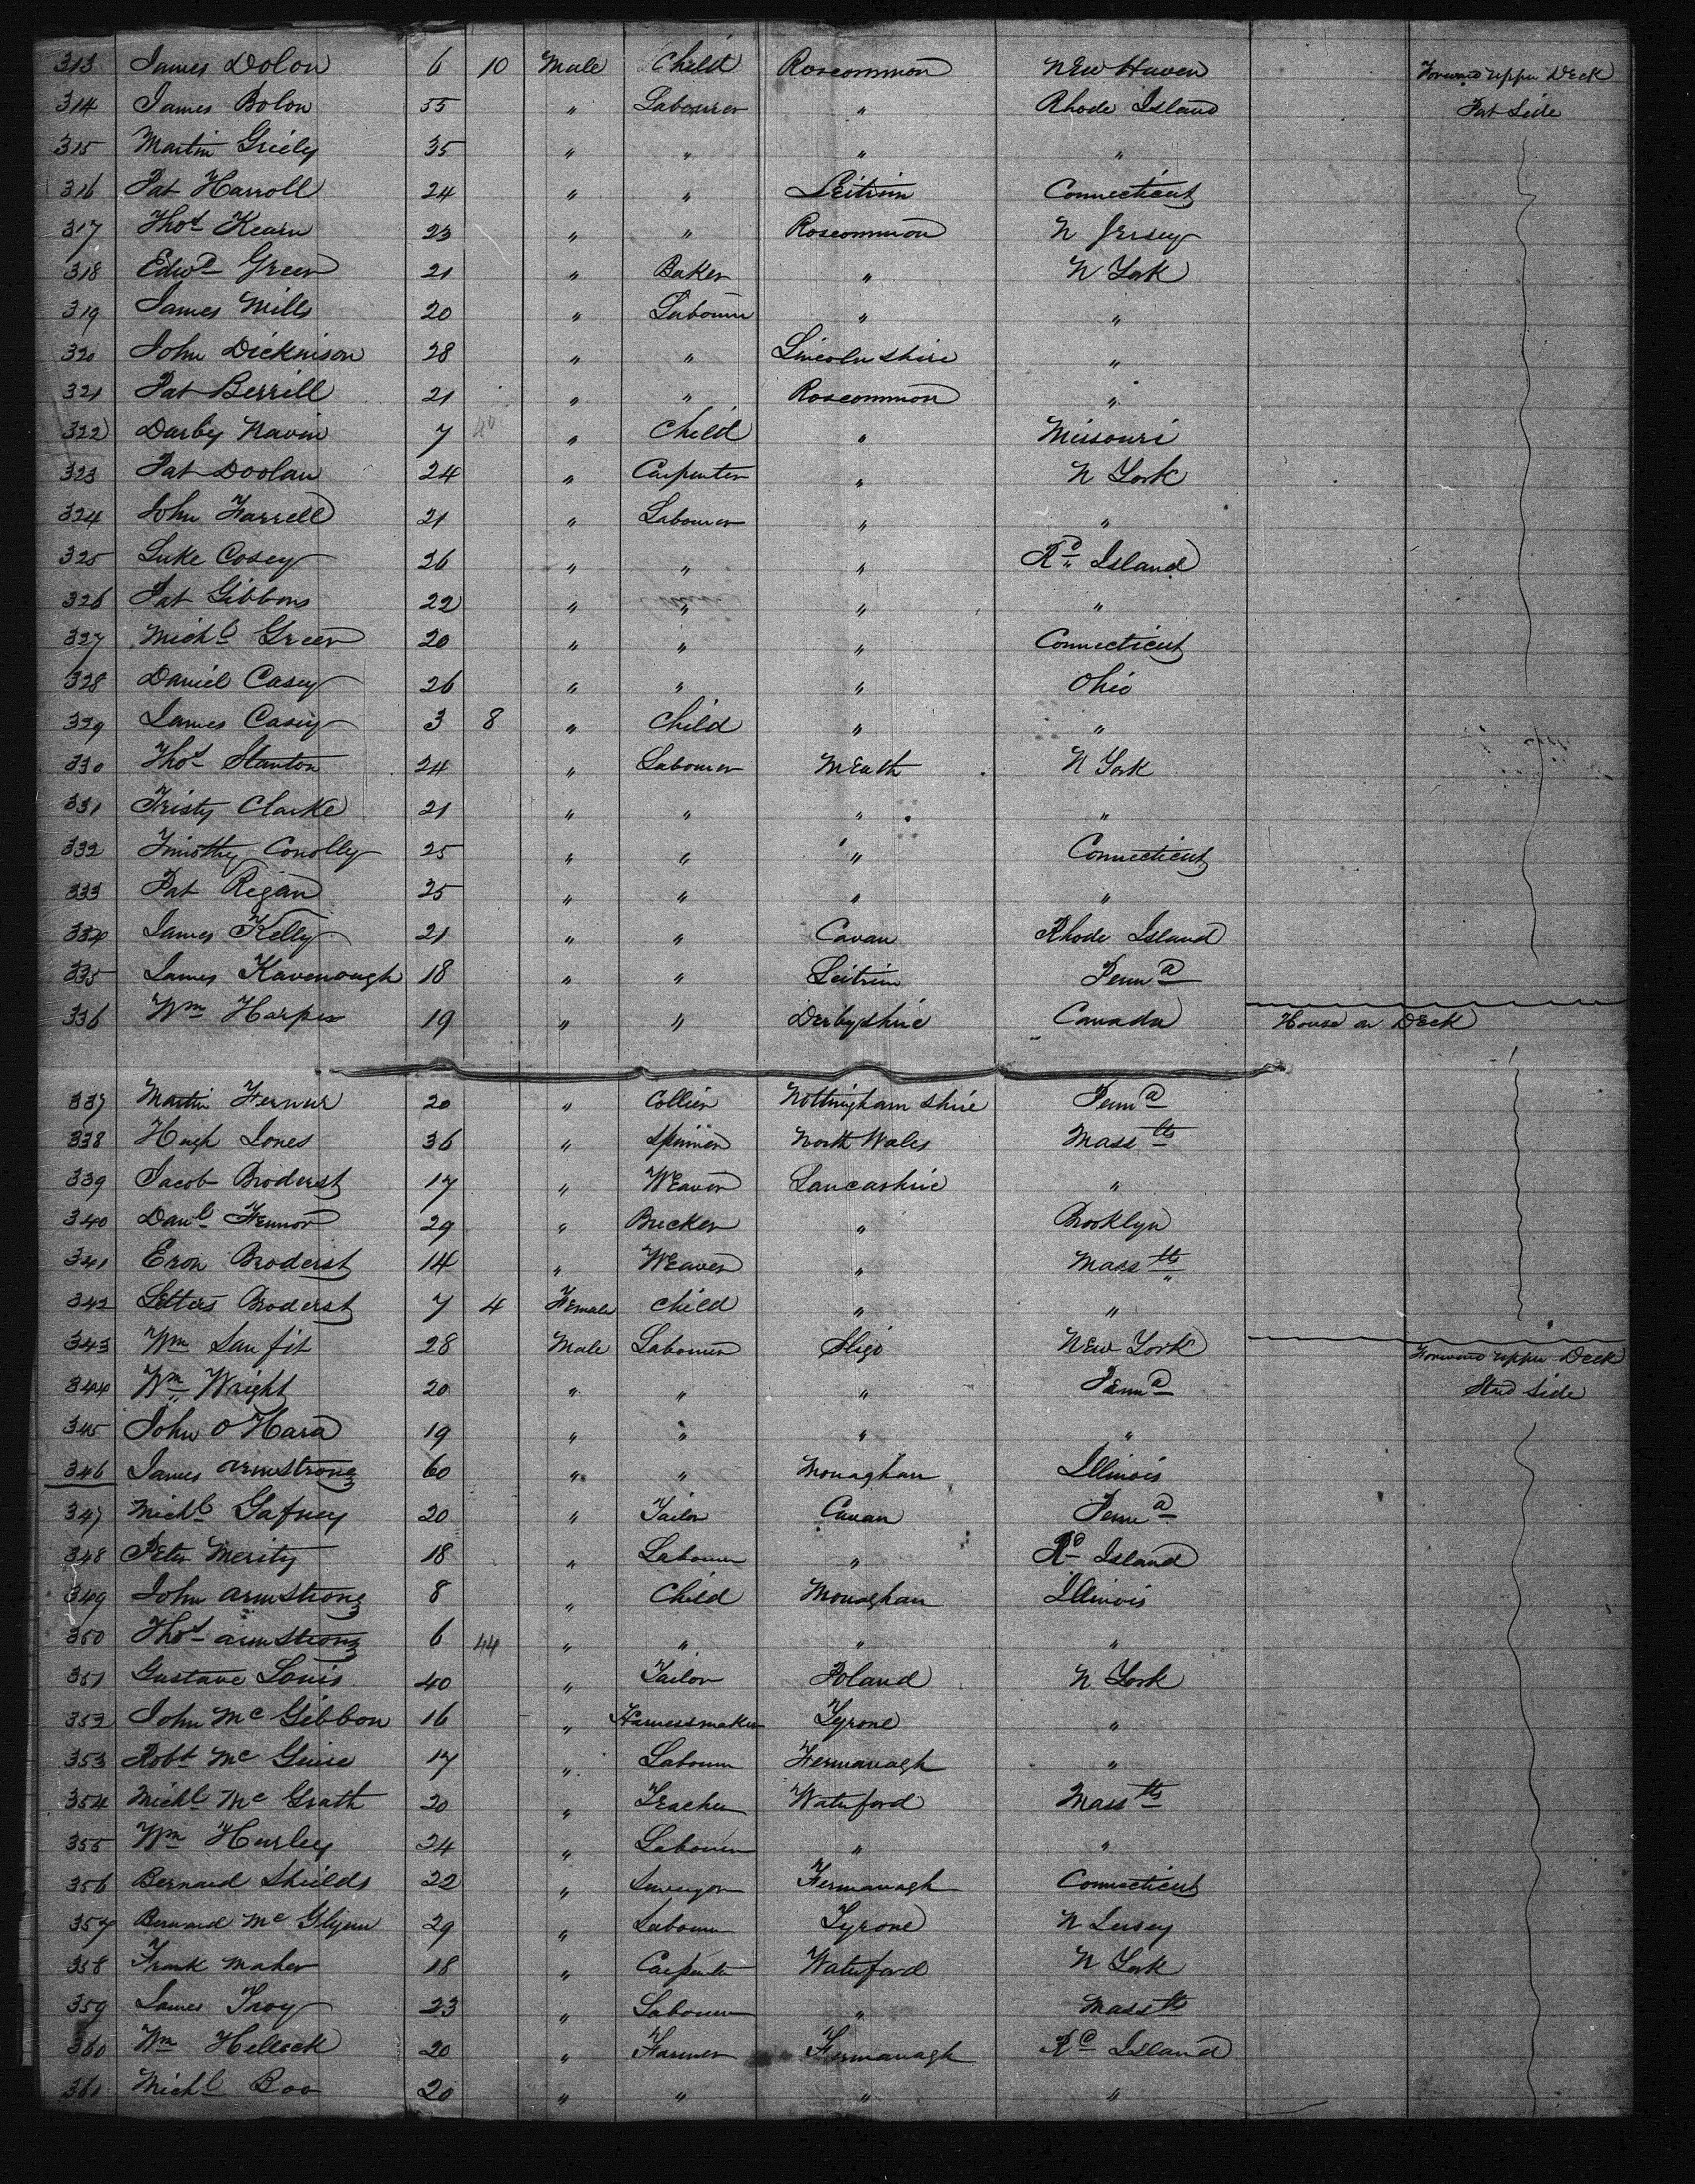 313 James Dolon 6 10 Male Child Roscommon New Haven Forward upper Deck
314 James Bolon 55 " Labourer " Rhode Island Port Side
315 Martin Griely 35 " " " "
316 Pat Harroll 24 " " Leitrim Connecticut
317 Thos Kearn 23 " " Roscommon N Jersey
318 Edwd Green 21 " Baker " N York
319 James Mills 20 " Labourer " "
320 John Dicknison 28 " " Lincolnshire "
321 Pat Berrill 21 " " Roscommon "
322 Darby Navin 7 40 " Child " Missouri
323 Pat Doolan 24 " Carpenter " N York
324 John Farrell 21 " Labourer " "
325 Luke Cosey 26 " " " Rd Island
326 Pat Gibbons 22 " " " "
327 Michl Green 20 " " " Connecticut
328 Daniel Casey 26 " " " Ohio
329 James Casey 3 8 " Child " "
330 Thos Stanton 24 " Labourer Meath N York
331 Tristy Clarke 21 " " " "
332 Timothy Conolly 25 " " " Connecticut
333 Pat Regan 25 " " " "
334 James Kelly 21 " " Cavan Rhode Island
335 James Kavenough 18 " " Leitrim Penna
336 Wm Harper 19 " " Derbyshire Canada House on Deck
337 Martin Fernur 20 " Collier Nottingham shire Penna
338 Hugh Jones 36 " Spinner North Wales Masstts
339 Jacob Broderst 17 " Weaver Lancashire "
340 Danl Fennor 29 " Bricker " Brooklyn
341 Eron Broderst 14 " Weaver " Masstts
342 Broderst 7 4 Female Child " "
343 Wm San fit 28 Male Labourer Sligo New York Forward upper Deck
344 Wm Wright 20 " " " Penna Stard Side
345 John O Hara 19 " " " "
346 James Armstrong 60 " " Monaghan Illinois
347 Michl Gafney 20 " Tailor Cavan Penna
348 Peter Merity 18 " Labourer " Rd Island
349 John Armstrong 8 " Child Monaghan Illinois
350 Thos Armstrong 6 44 " " " "
351 Gustave Louis 40 " Tailor Poland N York
352 John Mc Gibbon 16 " Harnessmaker Tyrone "
353 Robt Mc Guire 17 " Labourer Fermanagh "
354 Michl Mc Grath 20 " Teacher Waterford Masstts
355 Wm Hurley 24 " Labourer " "
356 Bernard Shields 22 " Surveyor Fermanagh Connecticut
357 Bernard Mc Glynn 29 " Labourer Tyrone N Jersey
358 Frank Maher 18 " Carpenter Waterford N York
359 James Troy 23 " Labourer " Masstts
360 Wm Hellock 20 " Farmer Fermanagh Rd Island
361 Michl Boo 20 " " " "